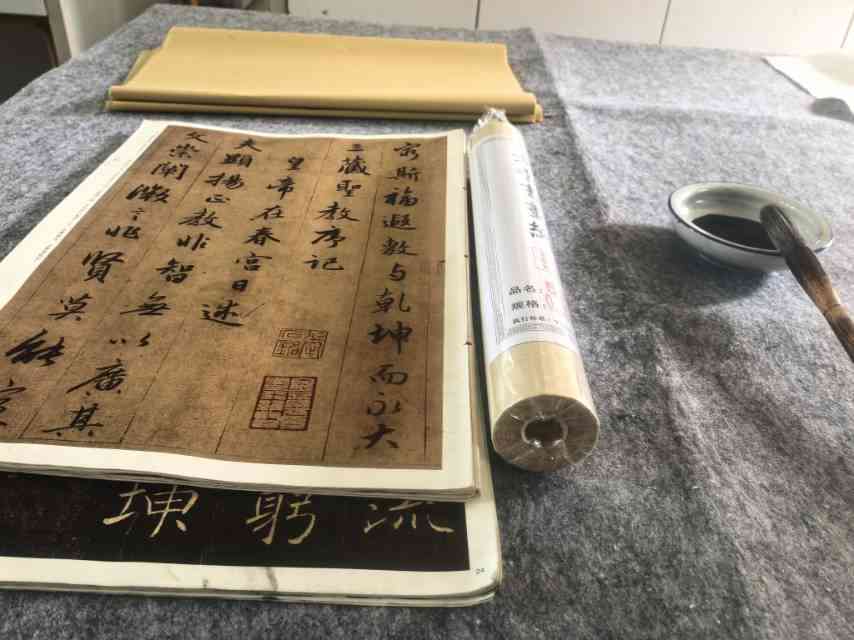 窮斯福遐敷与乾坤而永大
三藏聖教序記
皇帝在春宮日述
夫顯揚正教非智無以廣其
文崇闡微言非賢莫能定
流
躬
坤
品名:
规格:
执行标准: